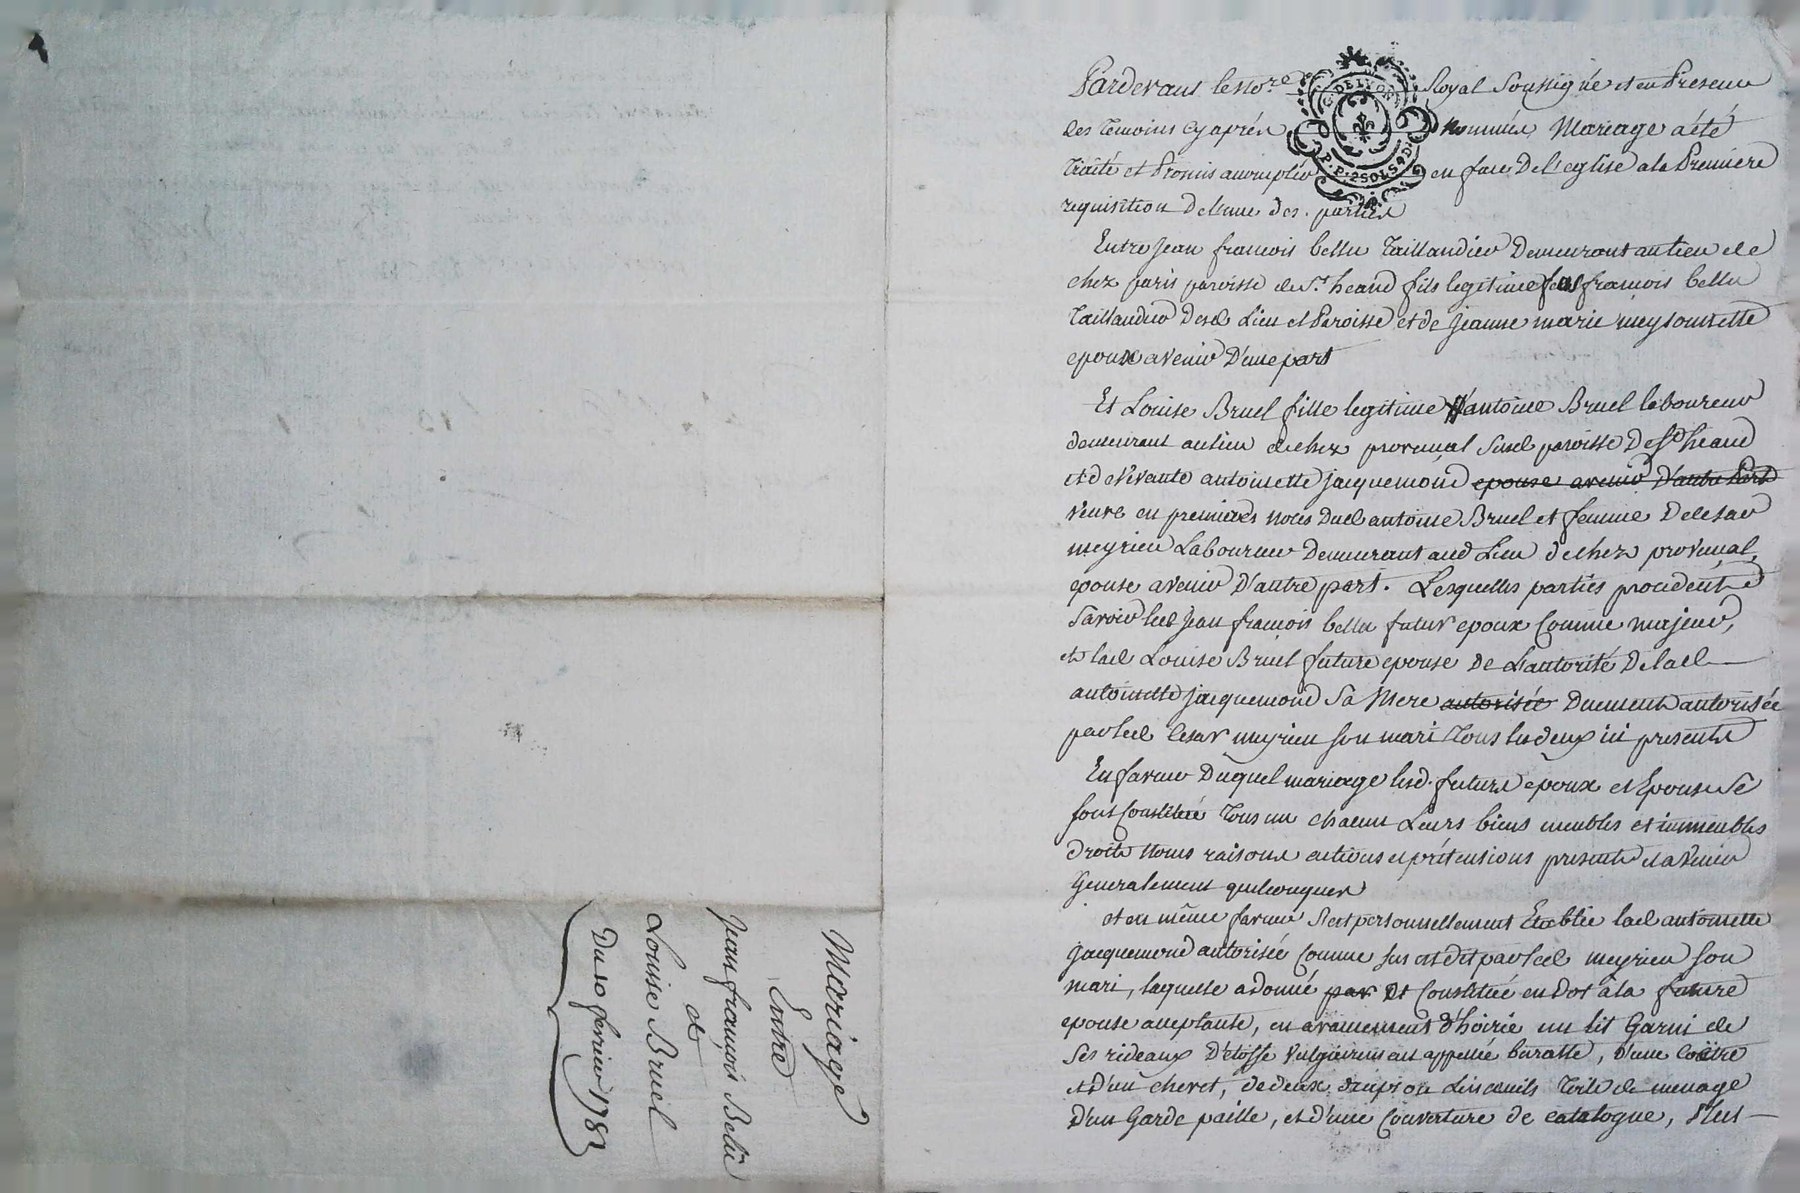 Pardevant le No.re Royal Soussigné et en Presence
des Temoins cy après Nommés, Mariage a été
Traité et Promis accomplir en face De l'eglise a la Premiere
requisition de l'une des parties
G. DE LYON
P. P. 2 SOLS 4 D.
Entre Jean francois bellu Taillandier Demeurant au lieu de
chez paris paroisse de S.t heand fils legitime feu francois bellu
Taillandier Desd Lieu et Paroisse et de Jeanne marie meysonnette
epoux avenir D'une part
Et Louise Bruel fille legitime d'antoine Bruel laboureur
demeurant au lieu de chez provenal susd paroisse De St heand
et de vivante antoinette jacquemond epouse avenir D'autre Part
veuve en premieres noces Dud antoine Bruel et femme De Cesar
meyrieu Laboureur Demeurant aud Lieu de chez provenal,
epouse avenir D'autre part. Lesquelles parties procedent
Savoir led Jean francois bellu futur epoux Comme majeur,
et lad Louise Bruel future epouse de L'autorité De lad
antoinette jacquemond Sa Mere autorisée Duement autorisée
par led Cesar meyrieu son mari Tous les deux ici presents
En faveur Duquel mariage lesd. futurs epoux et Epouse Se
sont Constitué Tous un chacun Leurs biens meubles et immeubles
droits noms raisons actions et prétensions presents et avenir
Generalement quelconques
et en même faveur s'est personnellement Etablie lad antoinette
jacquemond autorisée Comme sus est dit par led meyrieu son
mari, laquelle a donné par et Constitué en Dot à la future
epouse acceptante, en avancement d'hoirie un lit Garni de
Ses rideaux D'étoffe vulgairement appellée buratte, d'une Coëtre
et D'un chevet, de deux draps ou Linceuils Toile de menage
D'un Garde paille, et d'une Couverture de catalogne, Plus
Mariage
Entre
Jean françois Bellu
et
Louise Bruel
Du 10 fevrier 1782